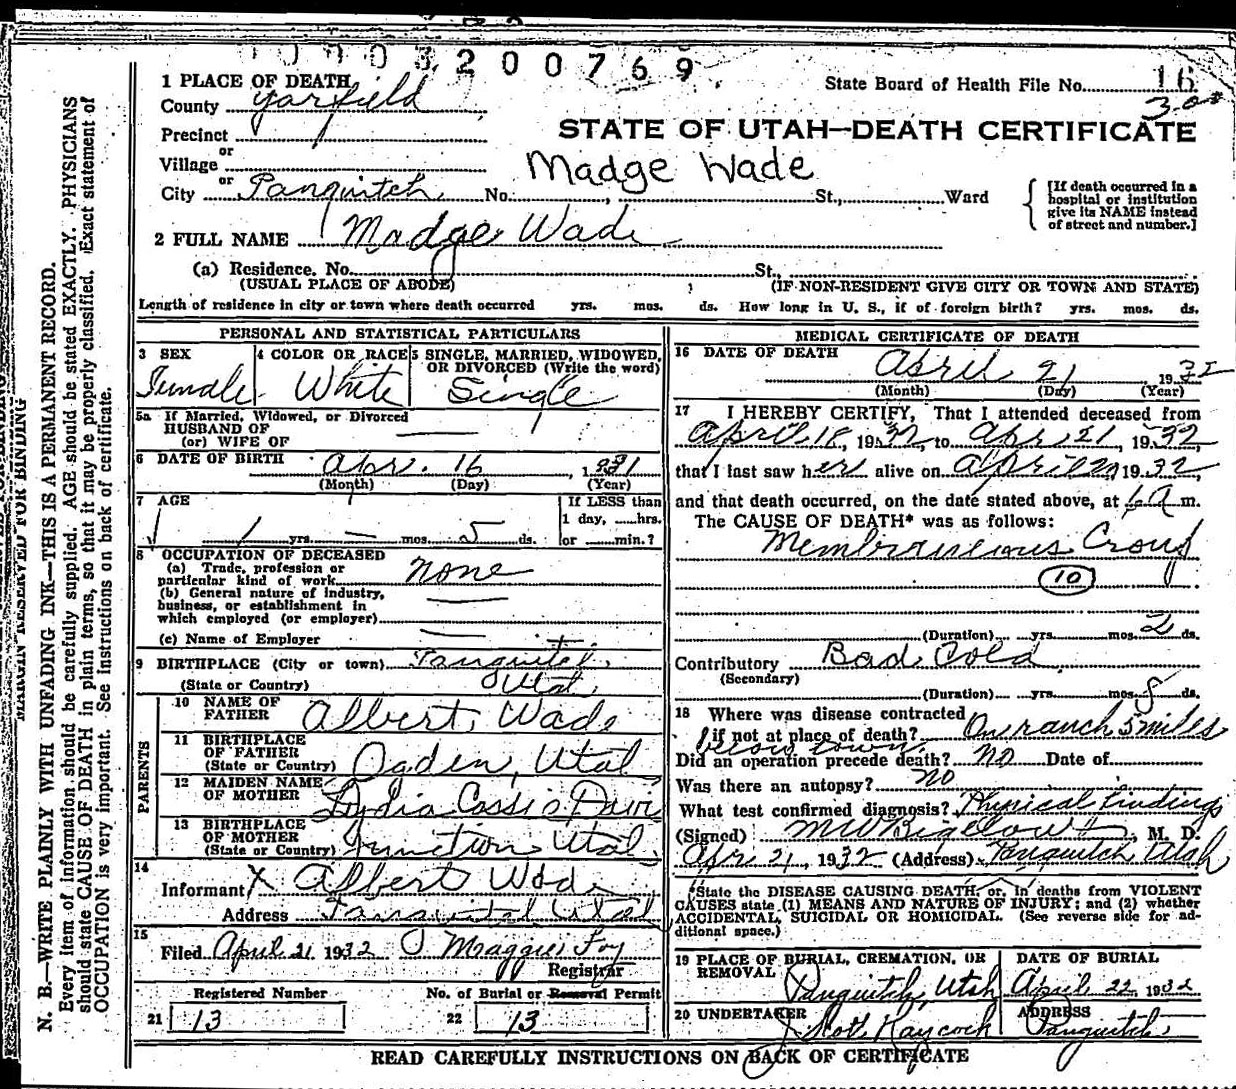 0 0 0 3 2 0 0 7 6 9
1 PLACE OF DEATH
State Board of Health File No. 16
County Garfield
Precinct
STATE OF UTAH—DEATH CERTIFICATE
or
Village
Madge Wade
or
City Panguitch No. St., Ward
[If death occurred in a hospital or institution give its NAME instead of street and number.]
2 FULL NAME Madge Wade
(a) Residence. No. St.,
(USUAL PLACE OF ABODE) (IF NON-RESIDENT GIVE CITY OR TOWN AND STATE)
Length of residence in city or town where death occurred yrs. mos. ds. How long in U. S., if of foreign birth? yrs. mos. ds.
PERSONAL AND STATISTICAL PARTICULARS
3 SEX
Female
4 COLOR OR RACE
White
5 SINGLE, MARRIED, WIDOWED, OR DIVORCED (Write the word)
Single
5a If Married, Widowed, or Divorced
HUSBAND OF
(or) WIFE OF
6 DATE OF BIRTH Apr. 16, 1931
(Month) (Day) (Year)
7 AGE
1 yrs. — mos. 5 ds.
If LESS than
1 day, hrs.
or min.?
8 OCCUPATION OF DECEASED
(a) Trade, profession or
particular kind of work None
(b) General nature of industry,
business, or establishment in
which employed (or employer)
(c) Name of Employer
9 BIRTHPLACE (City or town) Panguitch
(State or Country) Utah
PARENTS
10 NAME OF FATHER Albert Wade
11 BIRTHPLACE OF FATHER (State or Country) Ogden, Utah
12 MAIDEN NAME OF MOTHER Lydia Cassie
13 BIRTHPLACE OF MOTHER (State or Country) Junction Utah
14
Informant X Albert Wade
Address Panguitch Utah
15
Filed April 21 1932 Maggie Foy
Registrar
Registered Number No. of Burial or Removal Permit
21 13 22 13
MEDICAL CERTIFICATE OF DEATH
16 DATE OF DEATH
April 21 1932
(Month) (Day) (Year)
17 I HEREBY CERTIFY, That I attended deceased from
April 18, 1932 to Apr 21 1932
that I last saw her alive on April 1932,
and that death occurred, on the date stated above, at 6 a m.
The CAUSE OF DEATH* was as follows:
Membraneous Croup
10
(Duration) yrs. mos. 2 ds.
Contributory Bad Cold
(Secondary)
(Duration) yrs. mos. 8 ds.
18 Where was disease contracted
if not at place of death? On ranch 5 miles
below town.
Did an operation precede death? no Date of
Was there an autopsy? no
What test confirmed diagnosis? Physical findings
(Signed) M W Bigelow, M. D.
Apr 21, 1932 (Address) Panguitch Utah
*State the DISEASE CAUSING DEATH, or, in deaths from VIOLENT
CAUSES state (1) MEANS AND NATURE OF INJURY; and (2) whether
ACCIDENTAL, SUICIDAL OR HOMICIDAL. (See reverse side for ad-
ditional space.)
19 PLACE OF BURIAL, CREMATION, OR REMOVAL
Panguitch, Utah
DATE OF BURIAL
April 22, 1932
20 UNDERTAKER
Haycock
ADDRESS
Panguitch
READ CAREFULLY INSTRUCTIONS ON BACK OF CERTIFICATE
MARGIN RESERVED FOR BINDING
N. B.—WRITE PLAINLY WITH UNFADING INK—THIS IS A PERMANENT RECORD.
Every item of information should be carefully supplied. AGE should be stated EXACTLY. PHYSICIANS
should state CAUSE OF DEATH in plain terms, so that it may be properly classified. Exact statement of
OCCUPATION is very important. See instructions on back of certificate.